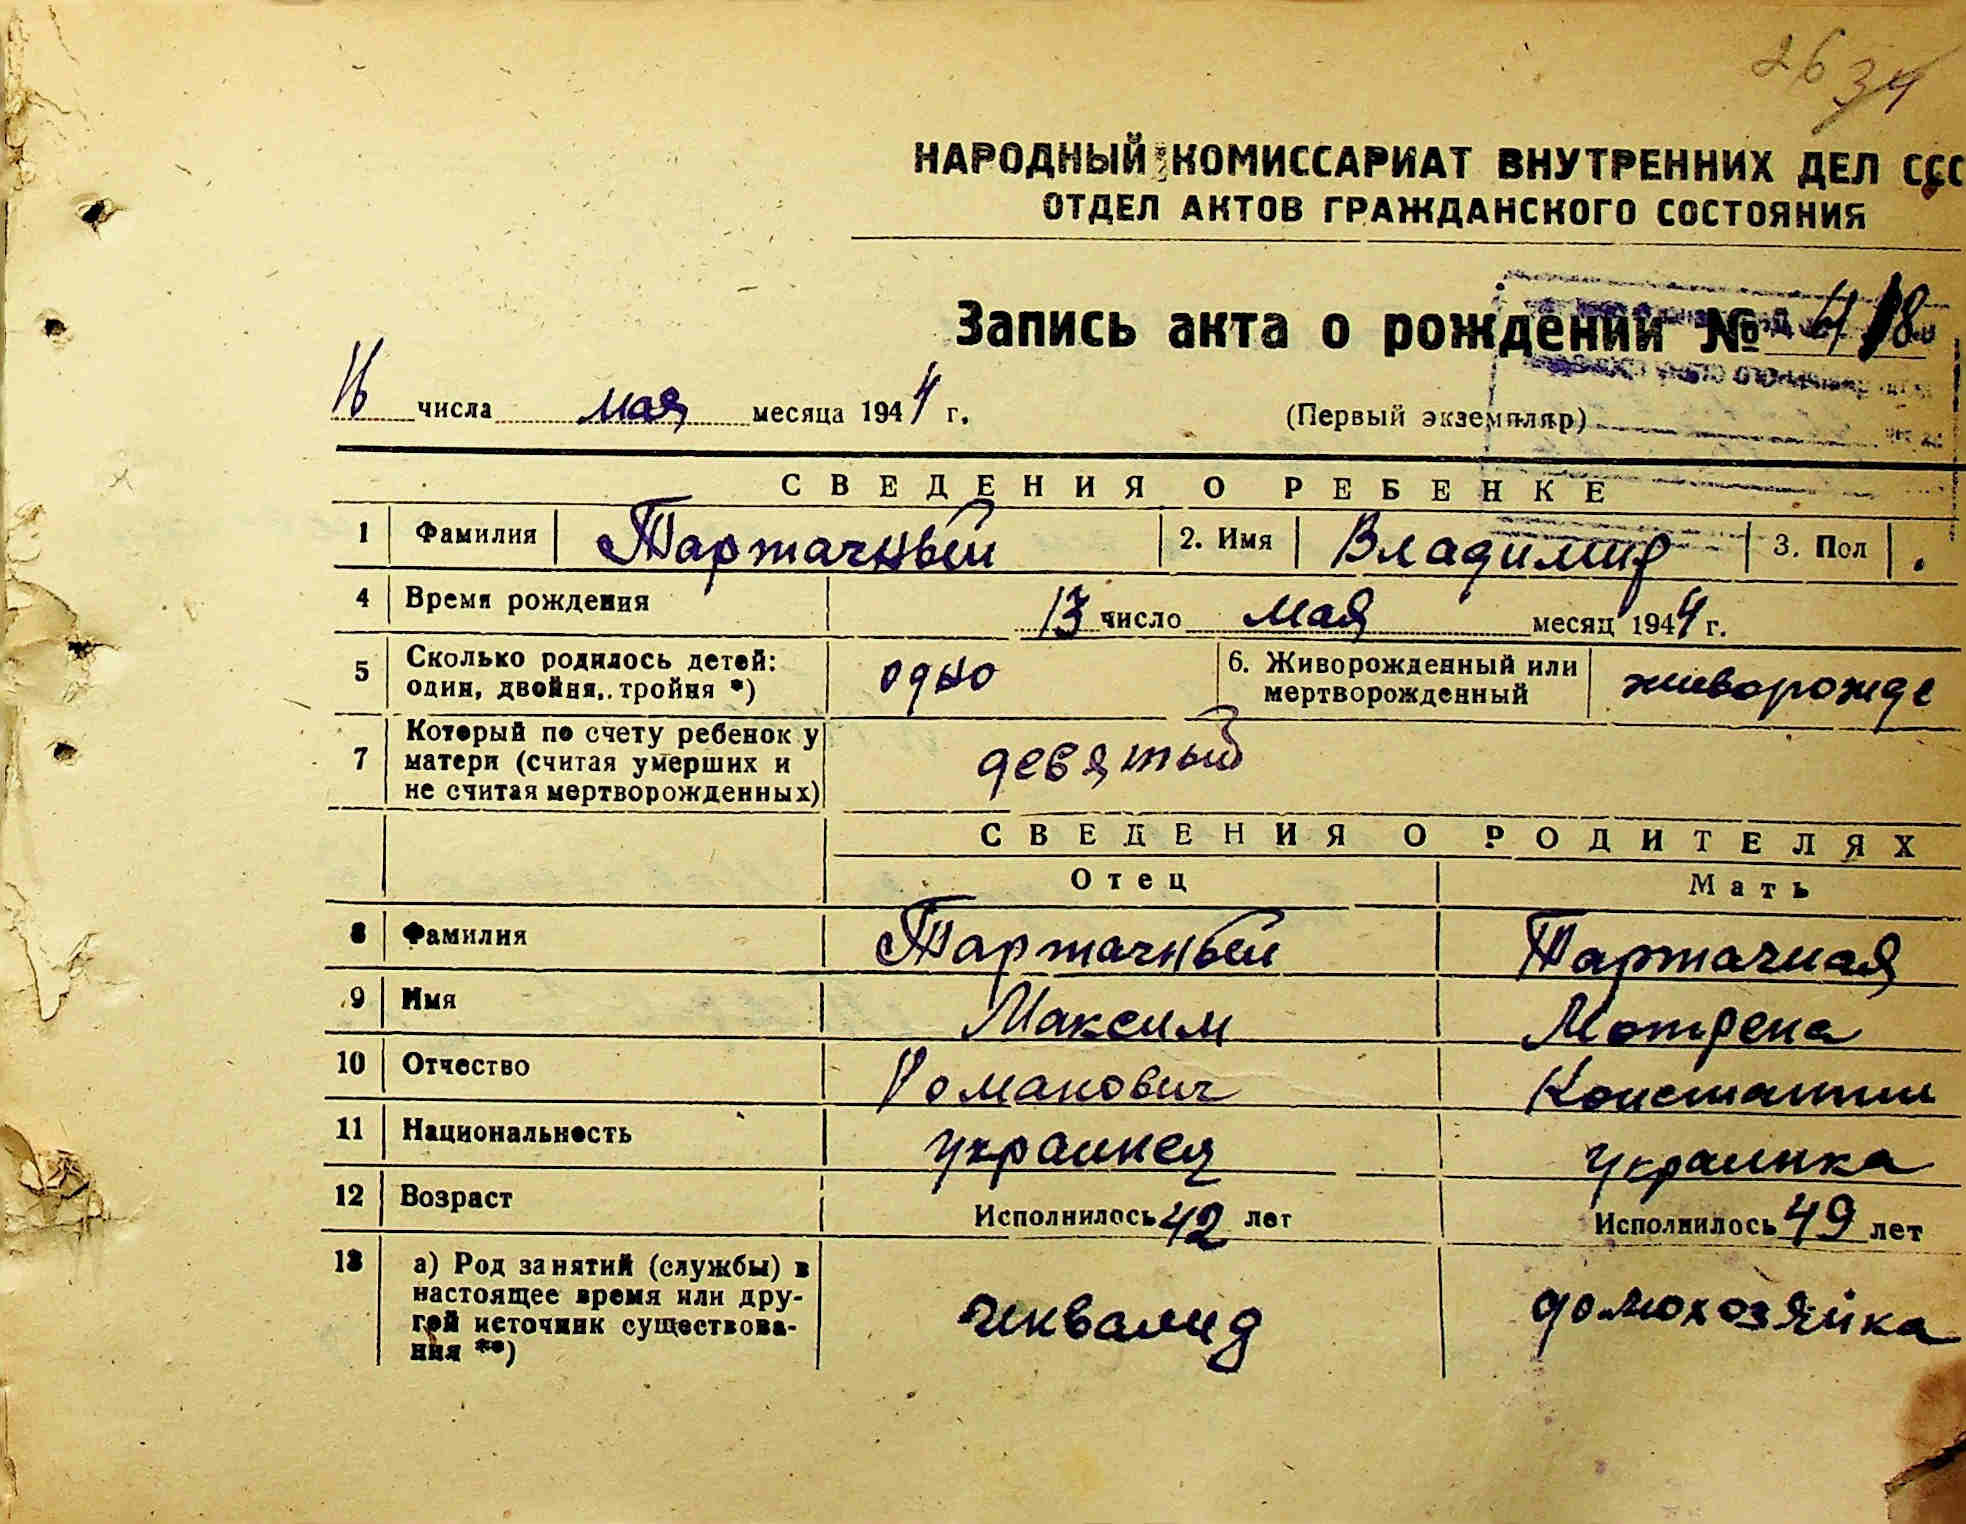 26 34
НАРОДНЫЙ КОМИССАРИАТ ВНУТРЕННИХ ДЕЛ ССС
ОТДЕЛ АКТОВ ГРАЖДАНСКОГО СОСТОЯНИЯ
Запись акта о рождении № 418
16 числа мая месяца 1944 г. (Первый экземпляр)
СВЕДЕНИЯ О РЕБЕНКЕ
1 Фамилия Тартачный 2. Имя Владимир 3. Пол
4 Время рождения 13 число мая месяц 1944 г.
5 Сколько родилось детей: один, двойня, тройня *) одно 6. Живорожденный или мертворожденный живорожде
7 Который по счету ребенок у матери (считая умерших и не считая мертворожденных) девятый
СВЕДЕНИЯ О РОДИТЕЛЯХ
Отец Мать
8 Фамилия Тартачный Тартачная
9 Имя Максим Мотрена
10 Отчество Романович Константин
11 Национальность украинец украинка
12 Возраст Исполнилось 42 лет Исполнилось 49 лет
13 а) Род занятий (службы) в настоящее время или другой источник существования **) инвалид домохозяйка